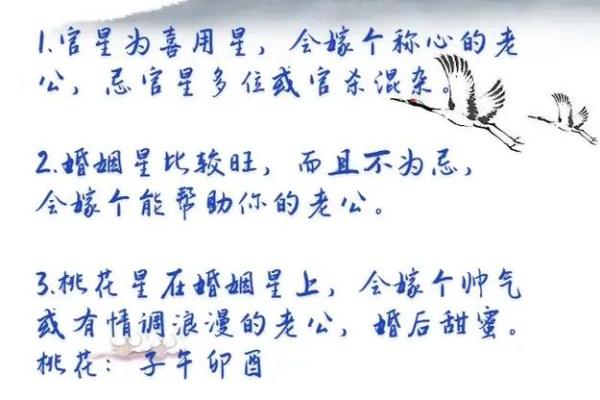 1.官星为喜用星，会嫁个称心的老
公，忌官星多位或官杀混杂。
2.婚姻星比较旺，而且不为忌，
会嫁个能帮助你的老公。
3.桃花星在婚姻星上，会嫁个帅气
或有情调浪漫的老公，婚后甜蜜。
桃花：子午卯酉